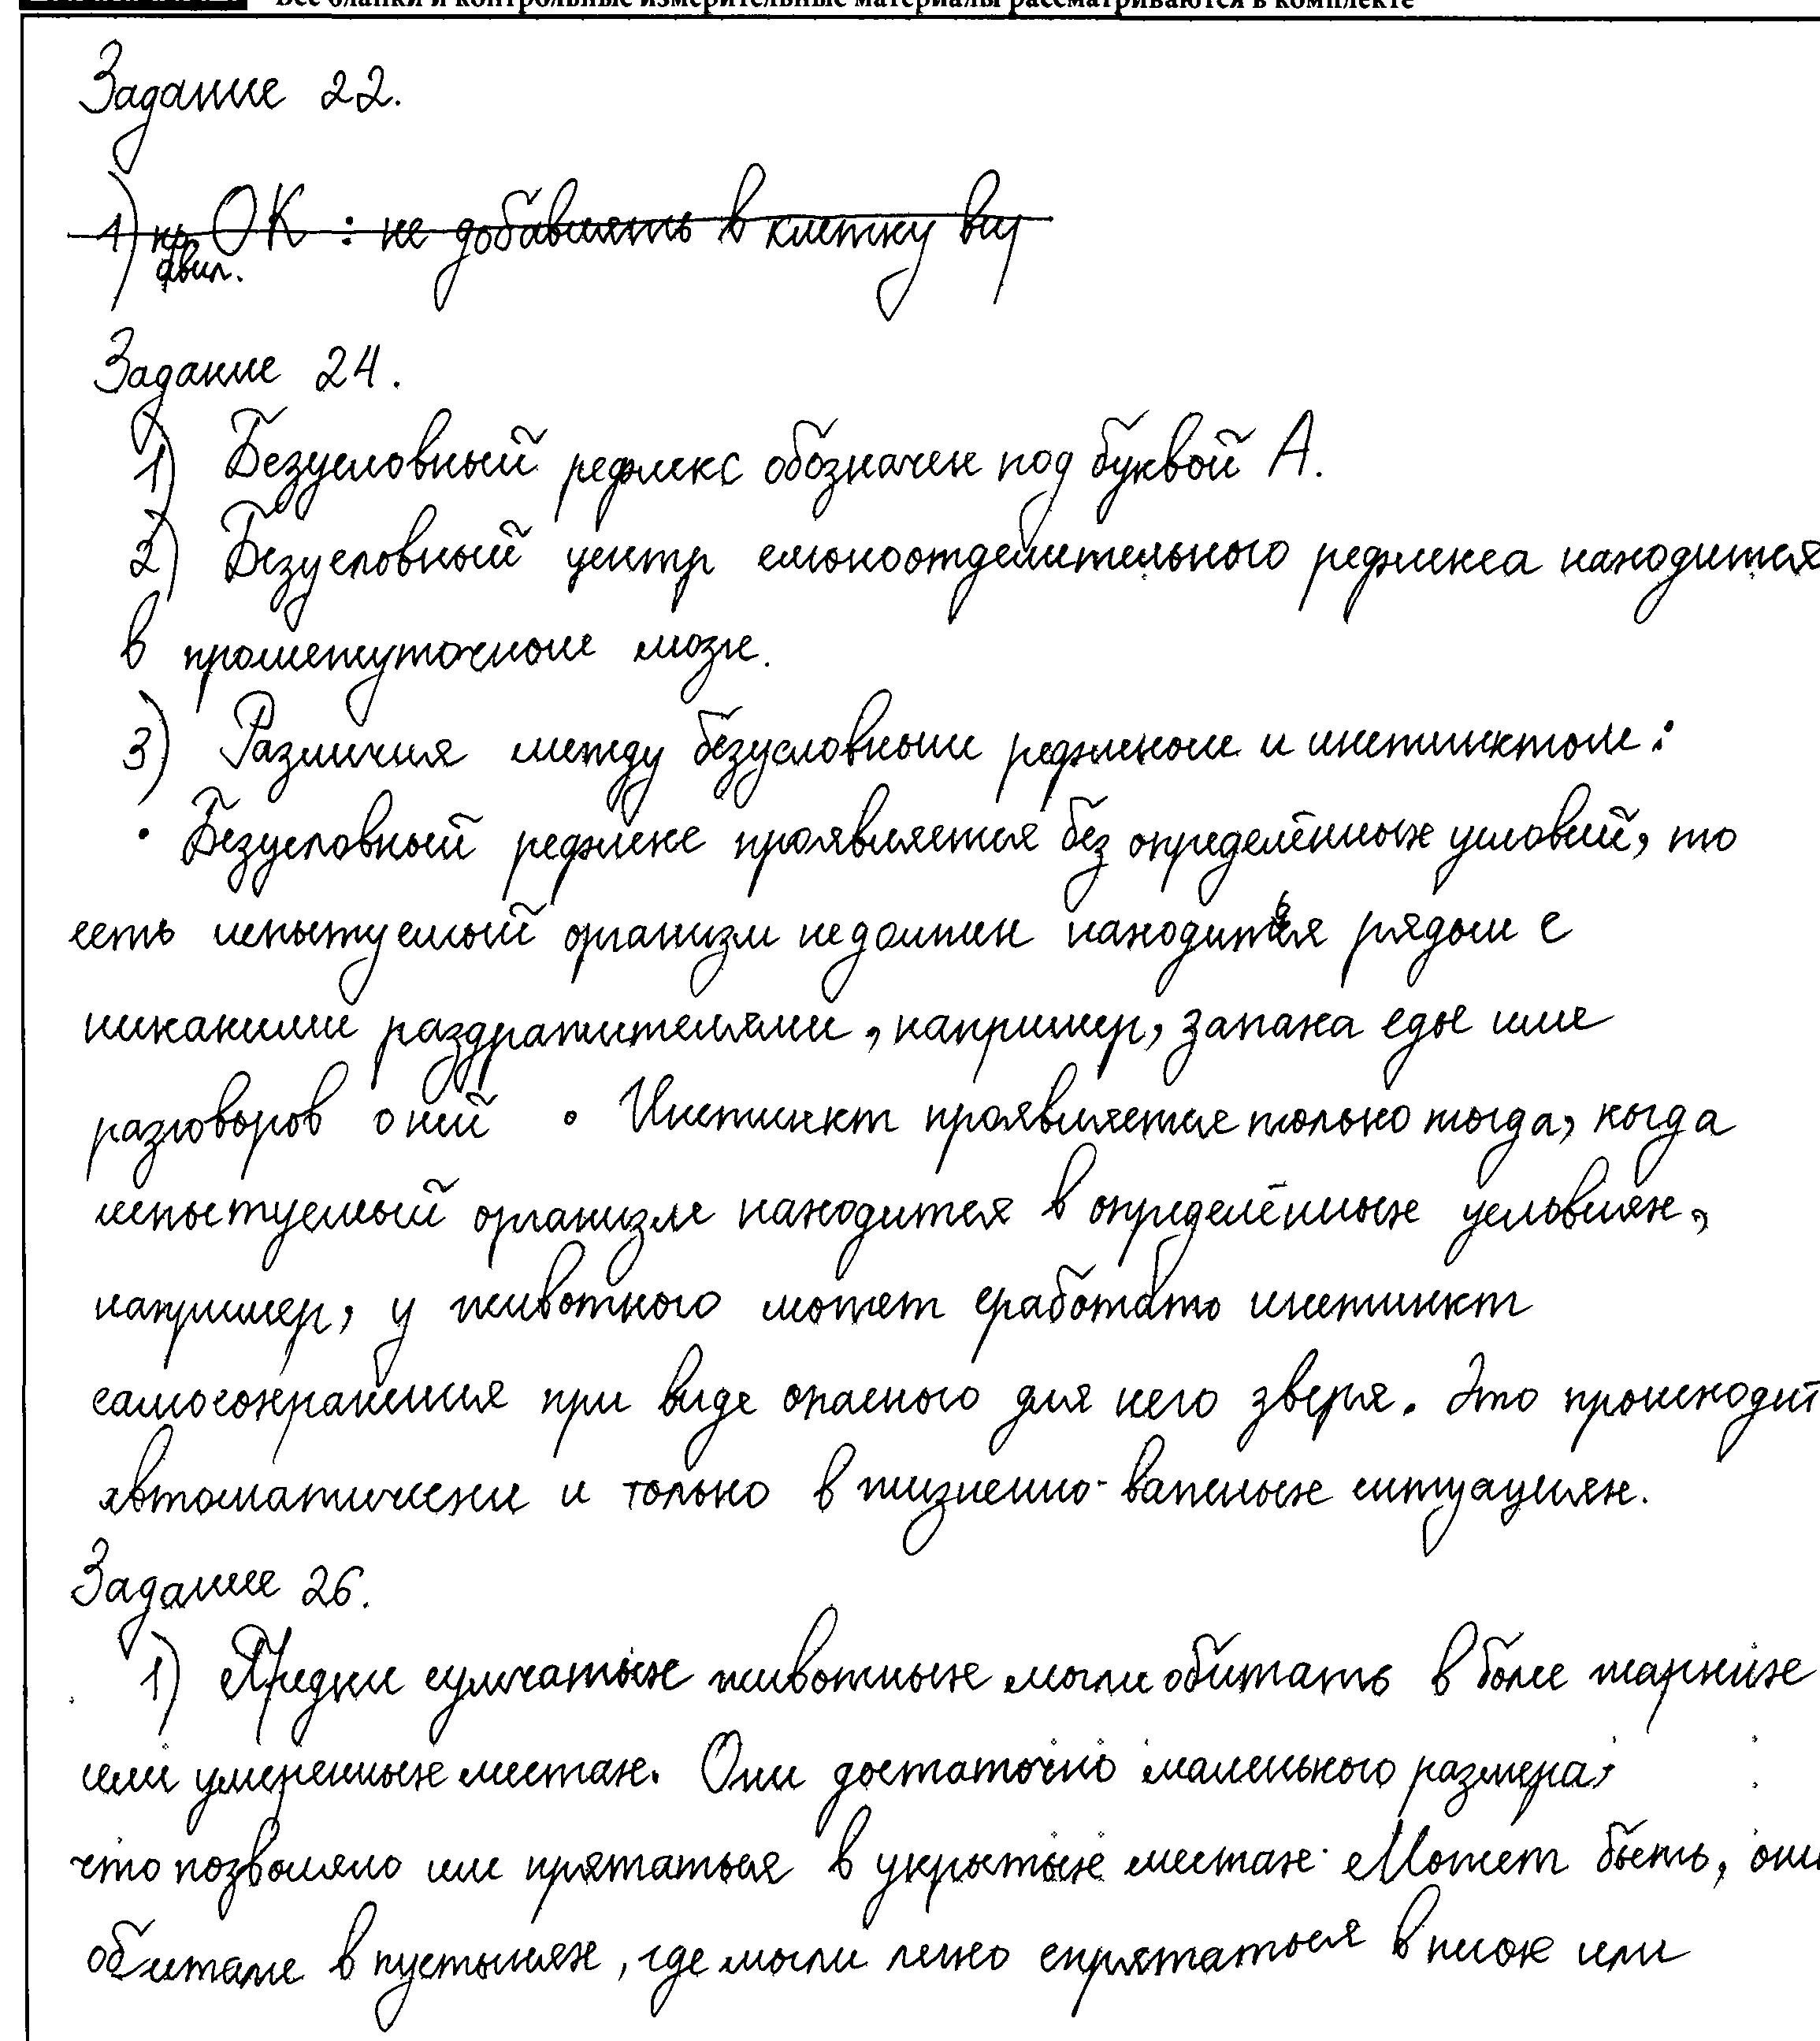 Все бланки и контрольные измерительные материалы рассматриваются в комплекте
Задание 22.
1) пр. ОК : не добавлять в клетку ви
Задание 24.
1) Безусловный рефлекс обозначен под буквой А.
2) Безусловный центр слюноотделительного рефлекса находится
в промежуточном мозге.
3) Различия между безусловным рефлексом и инстинктом:
• Безусловный рефлекс проявляется без определённых условий, то
есть испытуемый организм не должен находиться рядом с
никакими раздражителями, например, запаха еды или
разговоров о ней • Инстинкт проявляется только тогда, когда
испытуемый организм находится в определённых условиях,
например, у животного может сработать инстинкт
самосохранения при виде опасного для него зверя. Это происходит
автоматически и только в жизненно-важных ситуациях.
Задание 26.
1) Предки сумчатых животных могли обитать в более жарких
или умеренных местах. Они достаточно маленького размера,
что позволяло им прятаться в укрытых местах. Может быть, они
обитали в пустынях, где могли легко спрятаться в песок или